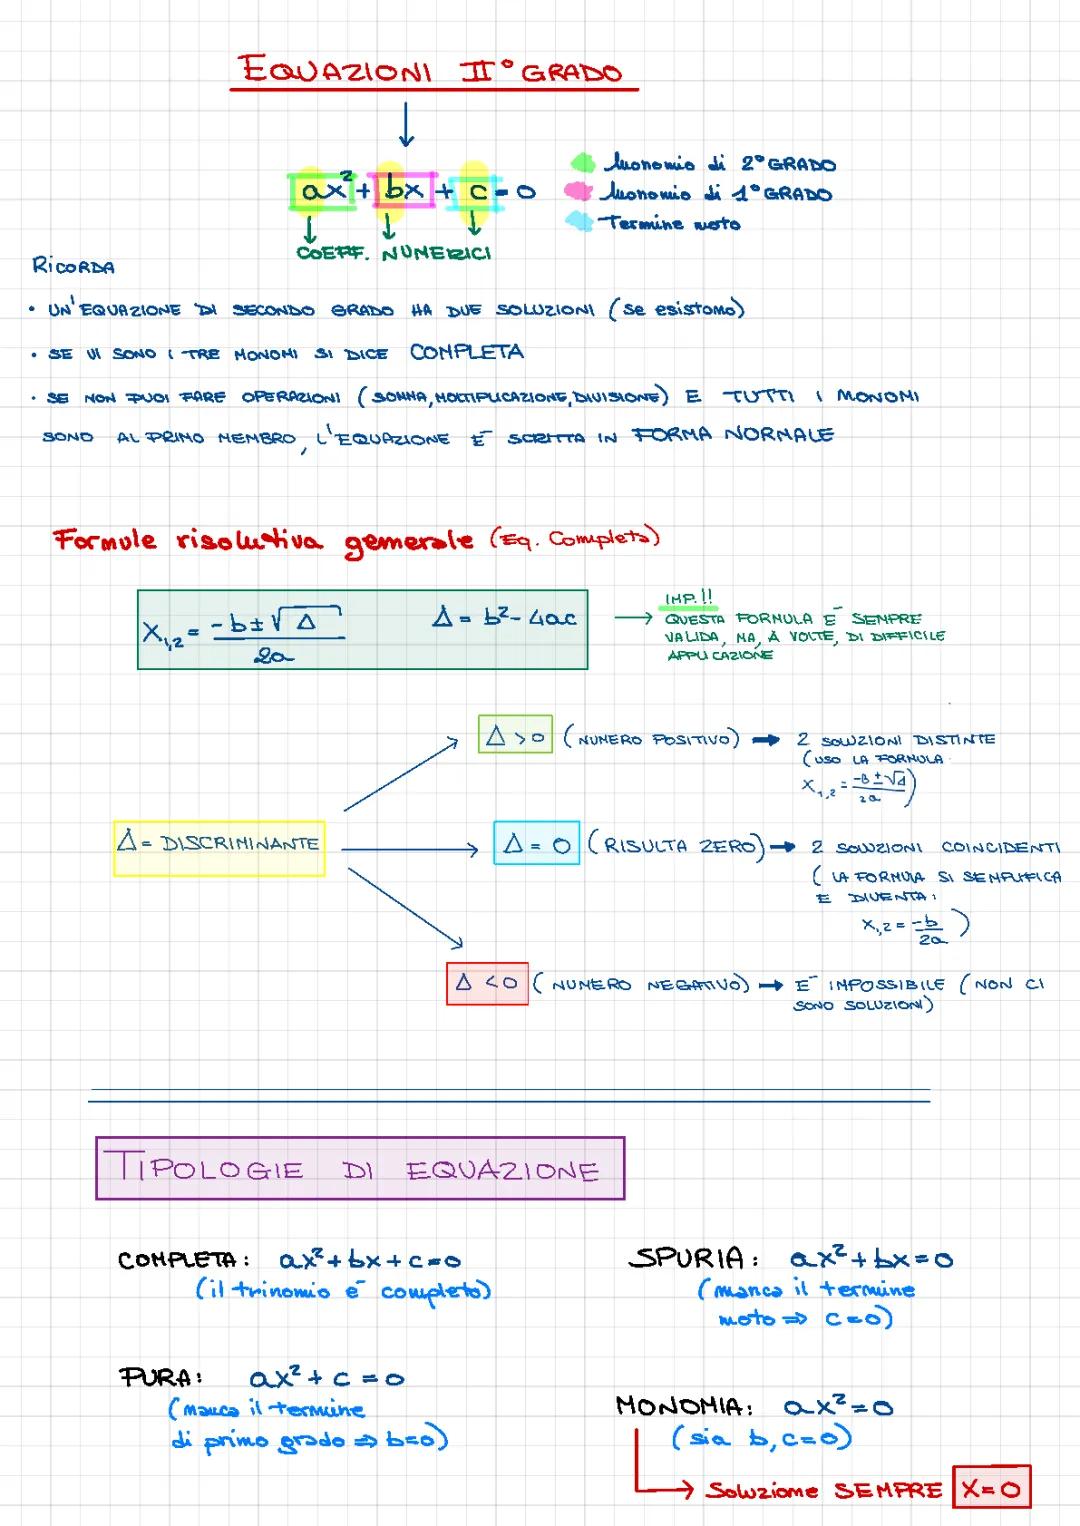 EQUAZIONI II° GRADO
ax² + bx + c = 0
Monomio di 2° GRADO
Monomio di 1° GRADO
Termine noto
COEFF. NUMERICI
RICORDA
• UN'EQUAZIONE DI SECONDO GRADO HA DUE SOLUZIONI (se esistono)
• SE VI SONO I TRE MONOMI SI DICE COMPLETA
• SE NON PUOI FARE OPERAZIONI (SOMMA, MOLTIPLICAZIONE, DIVISIONE) E TUTTI I MONOMI
SONO AL PRIMO MEMBRO, L'EQUAZIONE È SCRITTA IN FORMA NORMALE
Formule risolutiva generale (Eq. Completa)
X₁,₂ = -b±√Δ / 2a
Δ = b² - 4ac
→ IMP.!!
QUESTA FORMULA È SEMPRE
VALIDA, MA, A VOLTE, DI DIFFICILE
APPLICAZIONE
Δ > 0 (NUMERO POSITIVO) → 2 SOLUZIONI DISTINTE
(USO LA FORMULA
X₁,₂ = -B±√Δ / 2a)
Δ = DISCRIMINANTE
Δ = 0 (RISULTA ZERO) → 2 SOLUZIONI COINCIDENTI
(LA FORMULA SI SEMPLIFICA
E DIVENTA:
X₁,₂ = -b / 2a)
Δ < 0 (NUMERO NEGATIVO) → È IMPOSSIBILE (NON CI
SONO SOLUZIONI)
TIPOLOGIE DI EQUAZIONE
COMPLETA: ax² + bx + c = 0
(il trinomio è completo)
SPURIA: ax² + bx = 0
(manca il termine
noto ⇒ c=0)
PURA: ax² + c = 0
(manca il termine
di primo grado ⇒ b=0)
MONOMIA: ax² = 0
(sia b, c=0)
→ Soluzione SEMPRE X=0